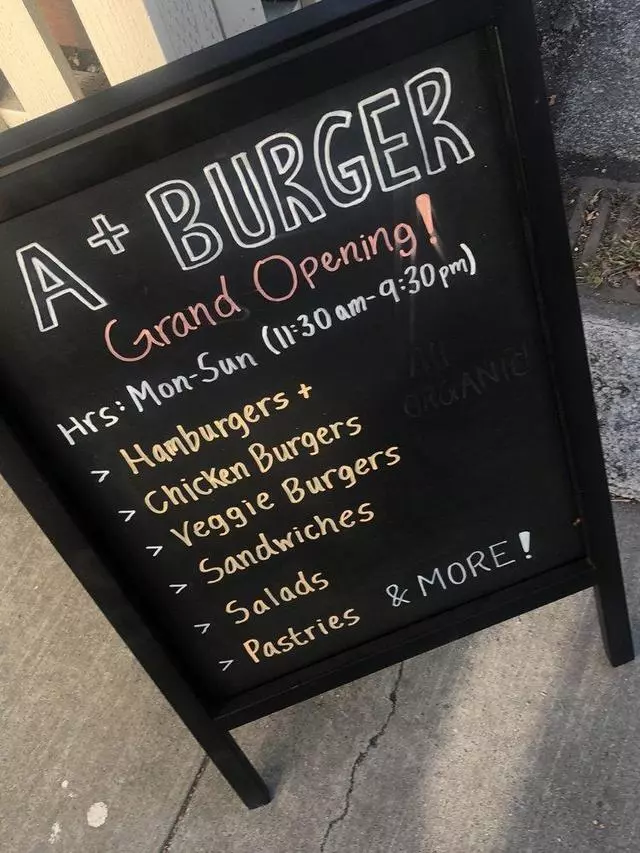 A+ BURGER
Grand Opening!
Hrs: Mon-Sun (11:30 am-9:30pm)
All
ORGANIC!
> Hamburgers +
> Chicken Burgers
> Veggie Burgers
> Sandwiches
> Salads
> Pastries & MORE!